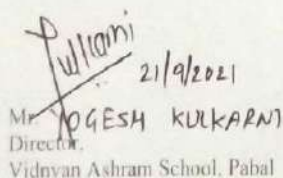 Kulkarni
21/9/2021
Mr. YOGESH KULKARNI
Director,
Vidnyan Ashram School, Pabal